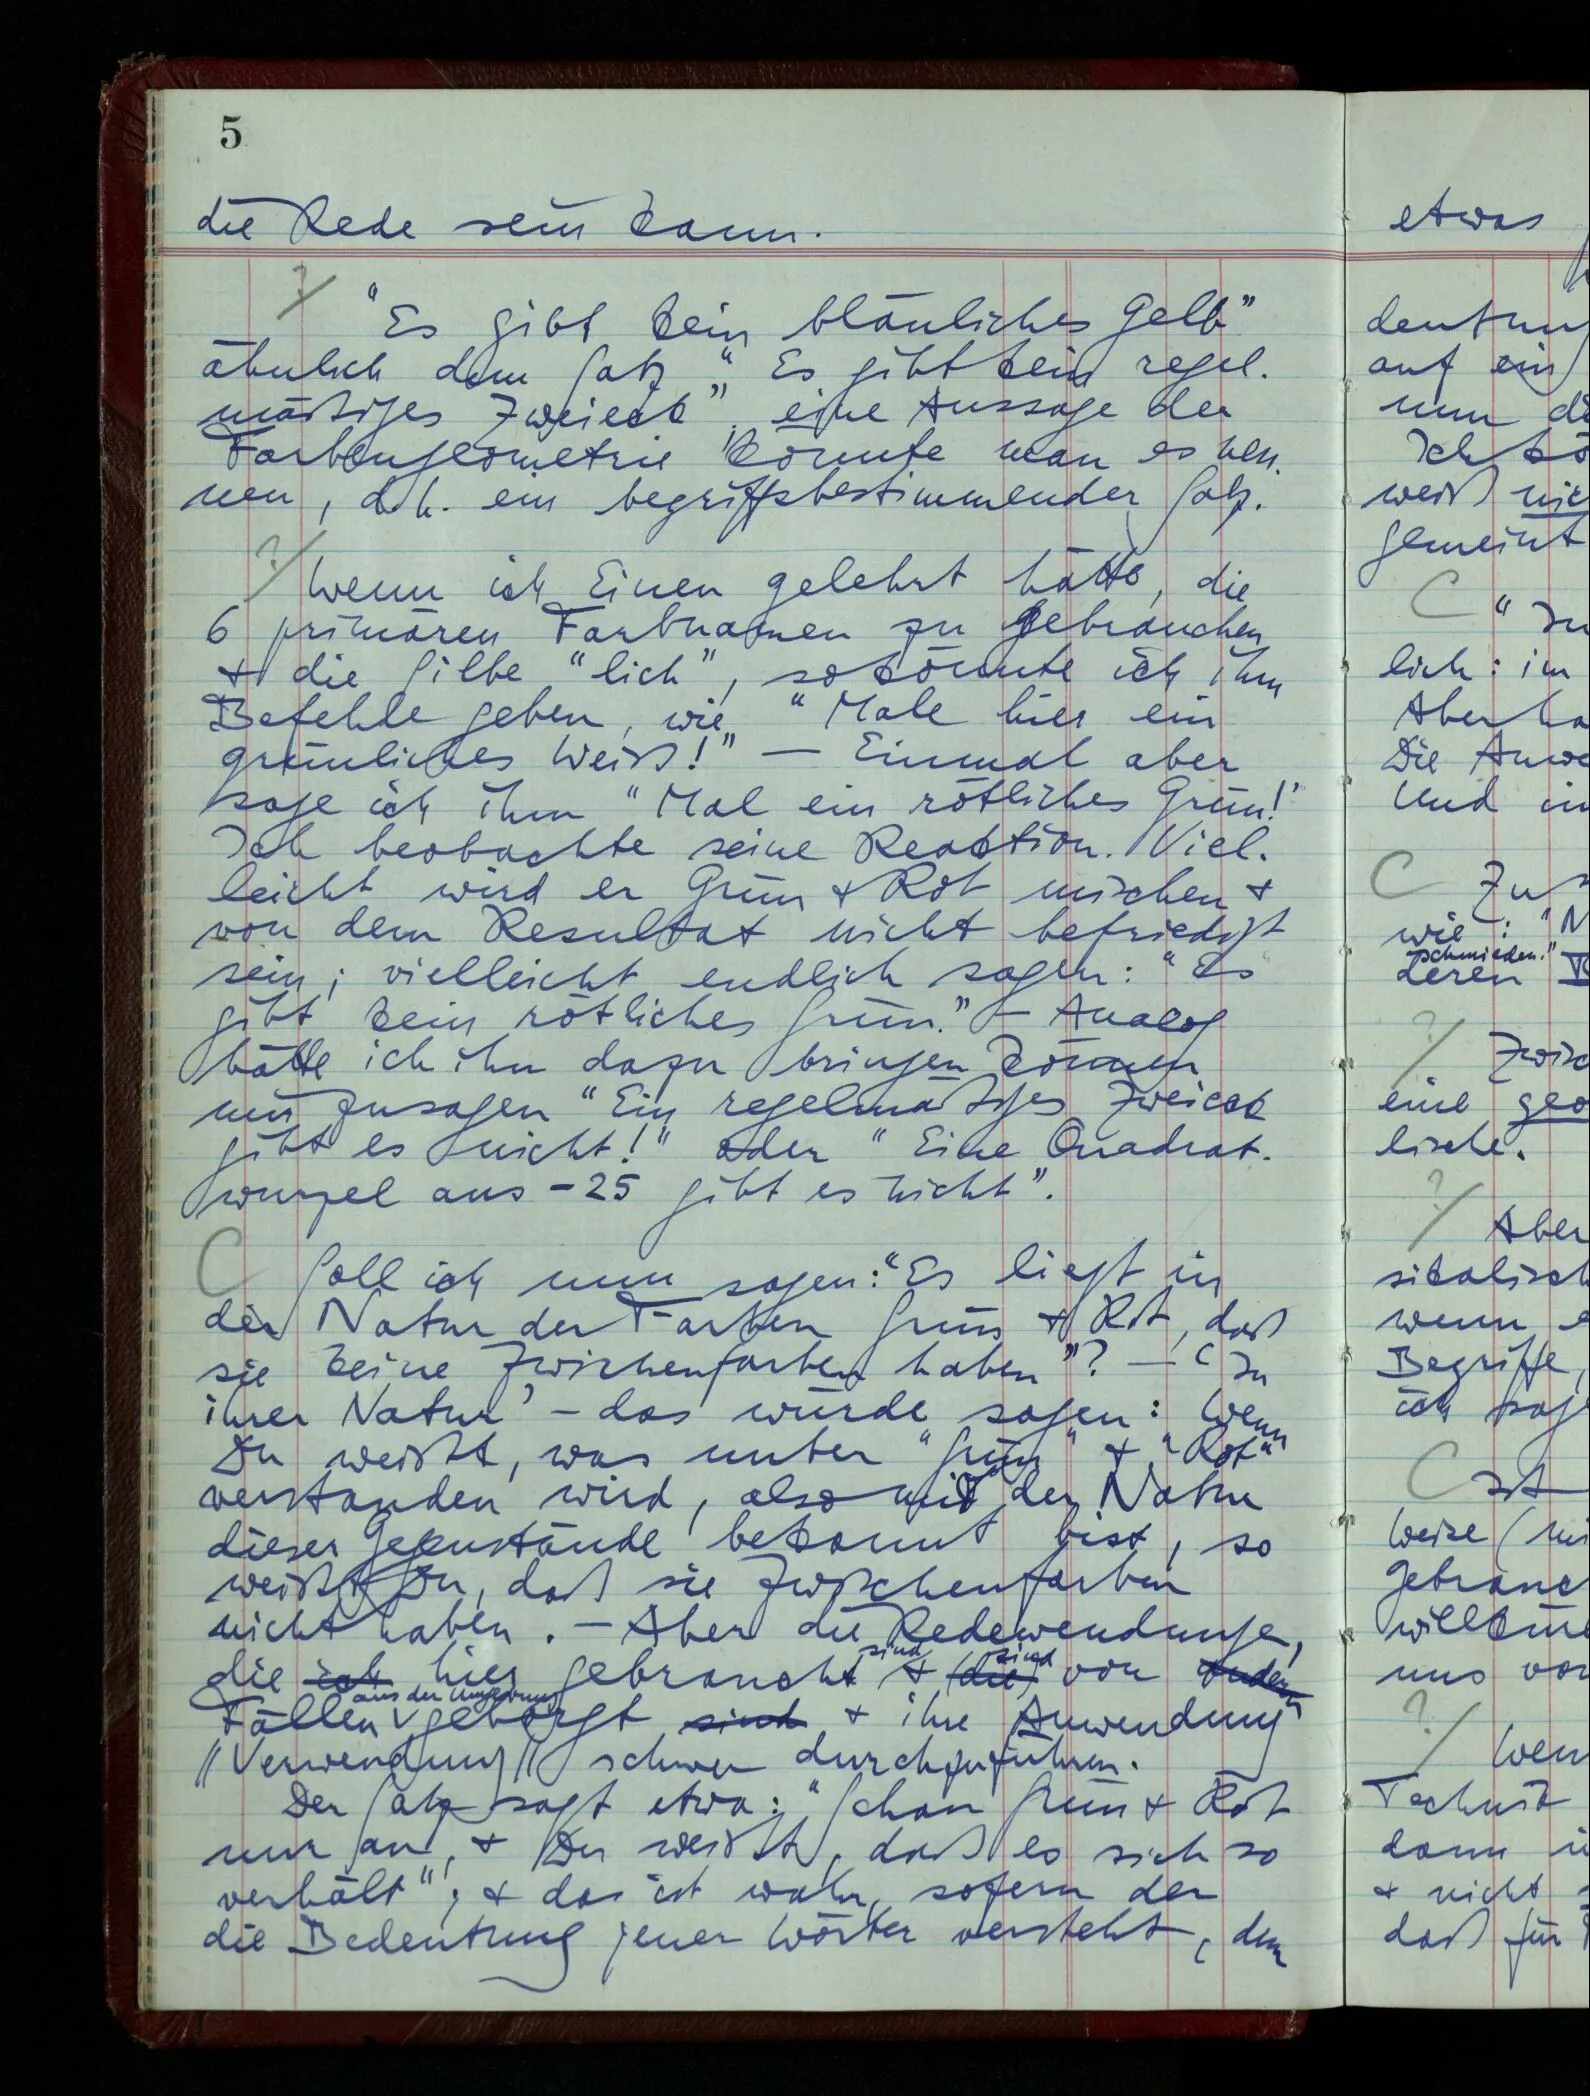 5
die Rede sein kann.
?/ "Es gibt kein bläuliches Gelb"
ähnlich dem Satz "Es gibt kein regel-
mäßiges Zweieck", eine Aussage der
Farbengeometrie könnte man es nen-
nen, d.h. ein begriffsbestimmender Satz.
?/ Wenn ich Einen gelehrt hätte, die
6 primären Farbnamen zu gebrauchen
& die Silbe "lich", so könnte ich ihm
Befehle geben, wie "Male hier ein
grünliches Weiß!" — Einmal aber
sage ich ihm "Mal ein rötliches Grün!"
Ich beobachte seine Reaktion. Viel-
leicht wird er Grün & Rot mischen &
von dem Resultat nicht befriedigt
sein; vielleicht endlich sagen: "Es
gibt kein rötliches Grün." — Analog
hätte ich ihn dazu bringen können
mir zu sagen "Ein regelmäßiges Zweieck
gibt es nicht!" oder "Eine Quadrat-
wurzel aus -25 gibt es nicht".
C Soll ich nun sagen: "Es liegt in
der Natur der Farben Grün & Rot, daß
sie keine Zwischenfarben haben"? — 'In
ihrer Natur' – das würde sagen: Wenn
Du weißt, was unter "Grün" & "Rot"
verstanden wird, also mit der Natur
dieser Gegenstände bekannt bist, so
weißt Du, daß sie Zwischenfarben
nicht haben. — Aber die Redewendungen,
die ich hier gebraucht sind & (die) sind von andern
Fällen aus der Umgebung geborgt sind & ihre Anwendung
//Verwendung// schwer durchzuführen.
Der Satz sagt etwa: "Schau Grün & Rot
nur an, & Du weißt, daß es sich so
verhält"; & das ist wahr, sofern der
die Bedeutung jener Wörter versteht, dem
etwas
deutun
auf ein
nun di
Ich kö
weiß nic
gemeint
C "In
lich: im
Aber ha
Die Anwe
Und in
C Zu
wie: "N
schmieden."
deren
?/ Zwisc
eine geo
lische.
?/ Aber
sikalisch
wenn e
Begriffe,
ich sage
C Ist
Weise (wi
gebrauc
willkür
uns vor
?/ Wen
Technik
dann i
& nicht
daß für